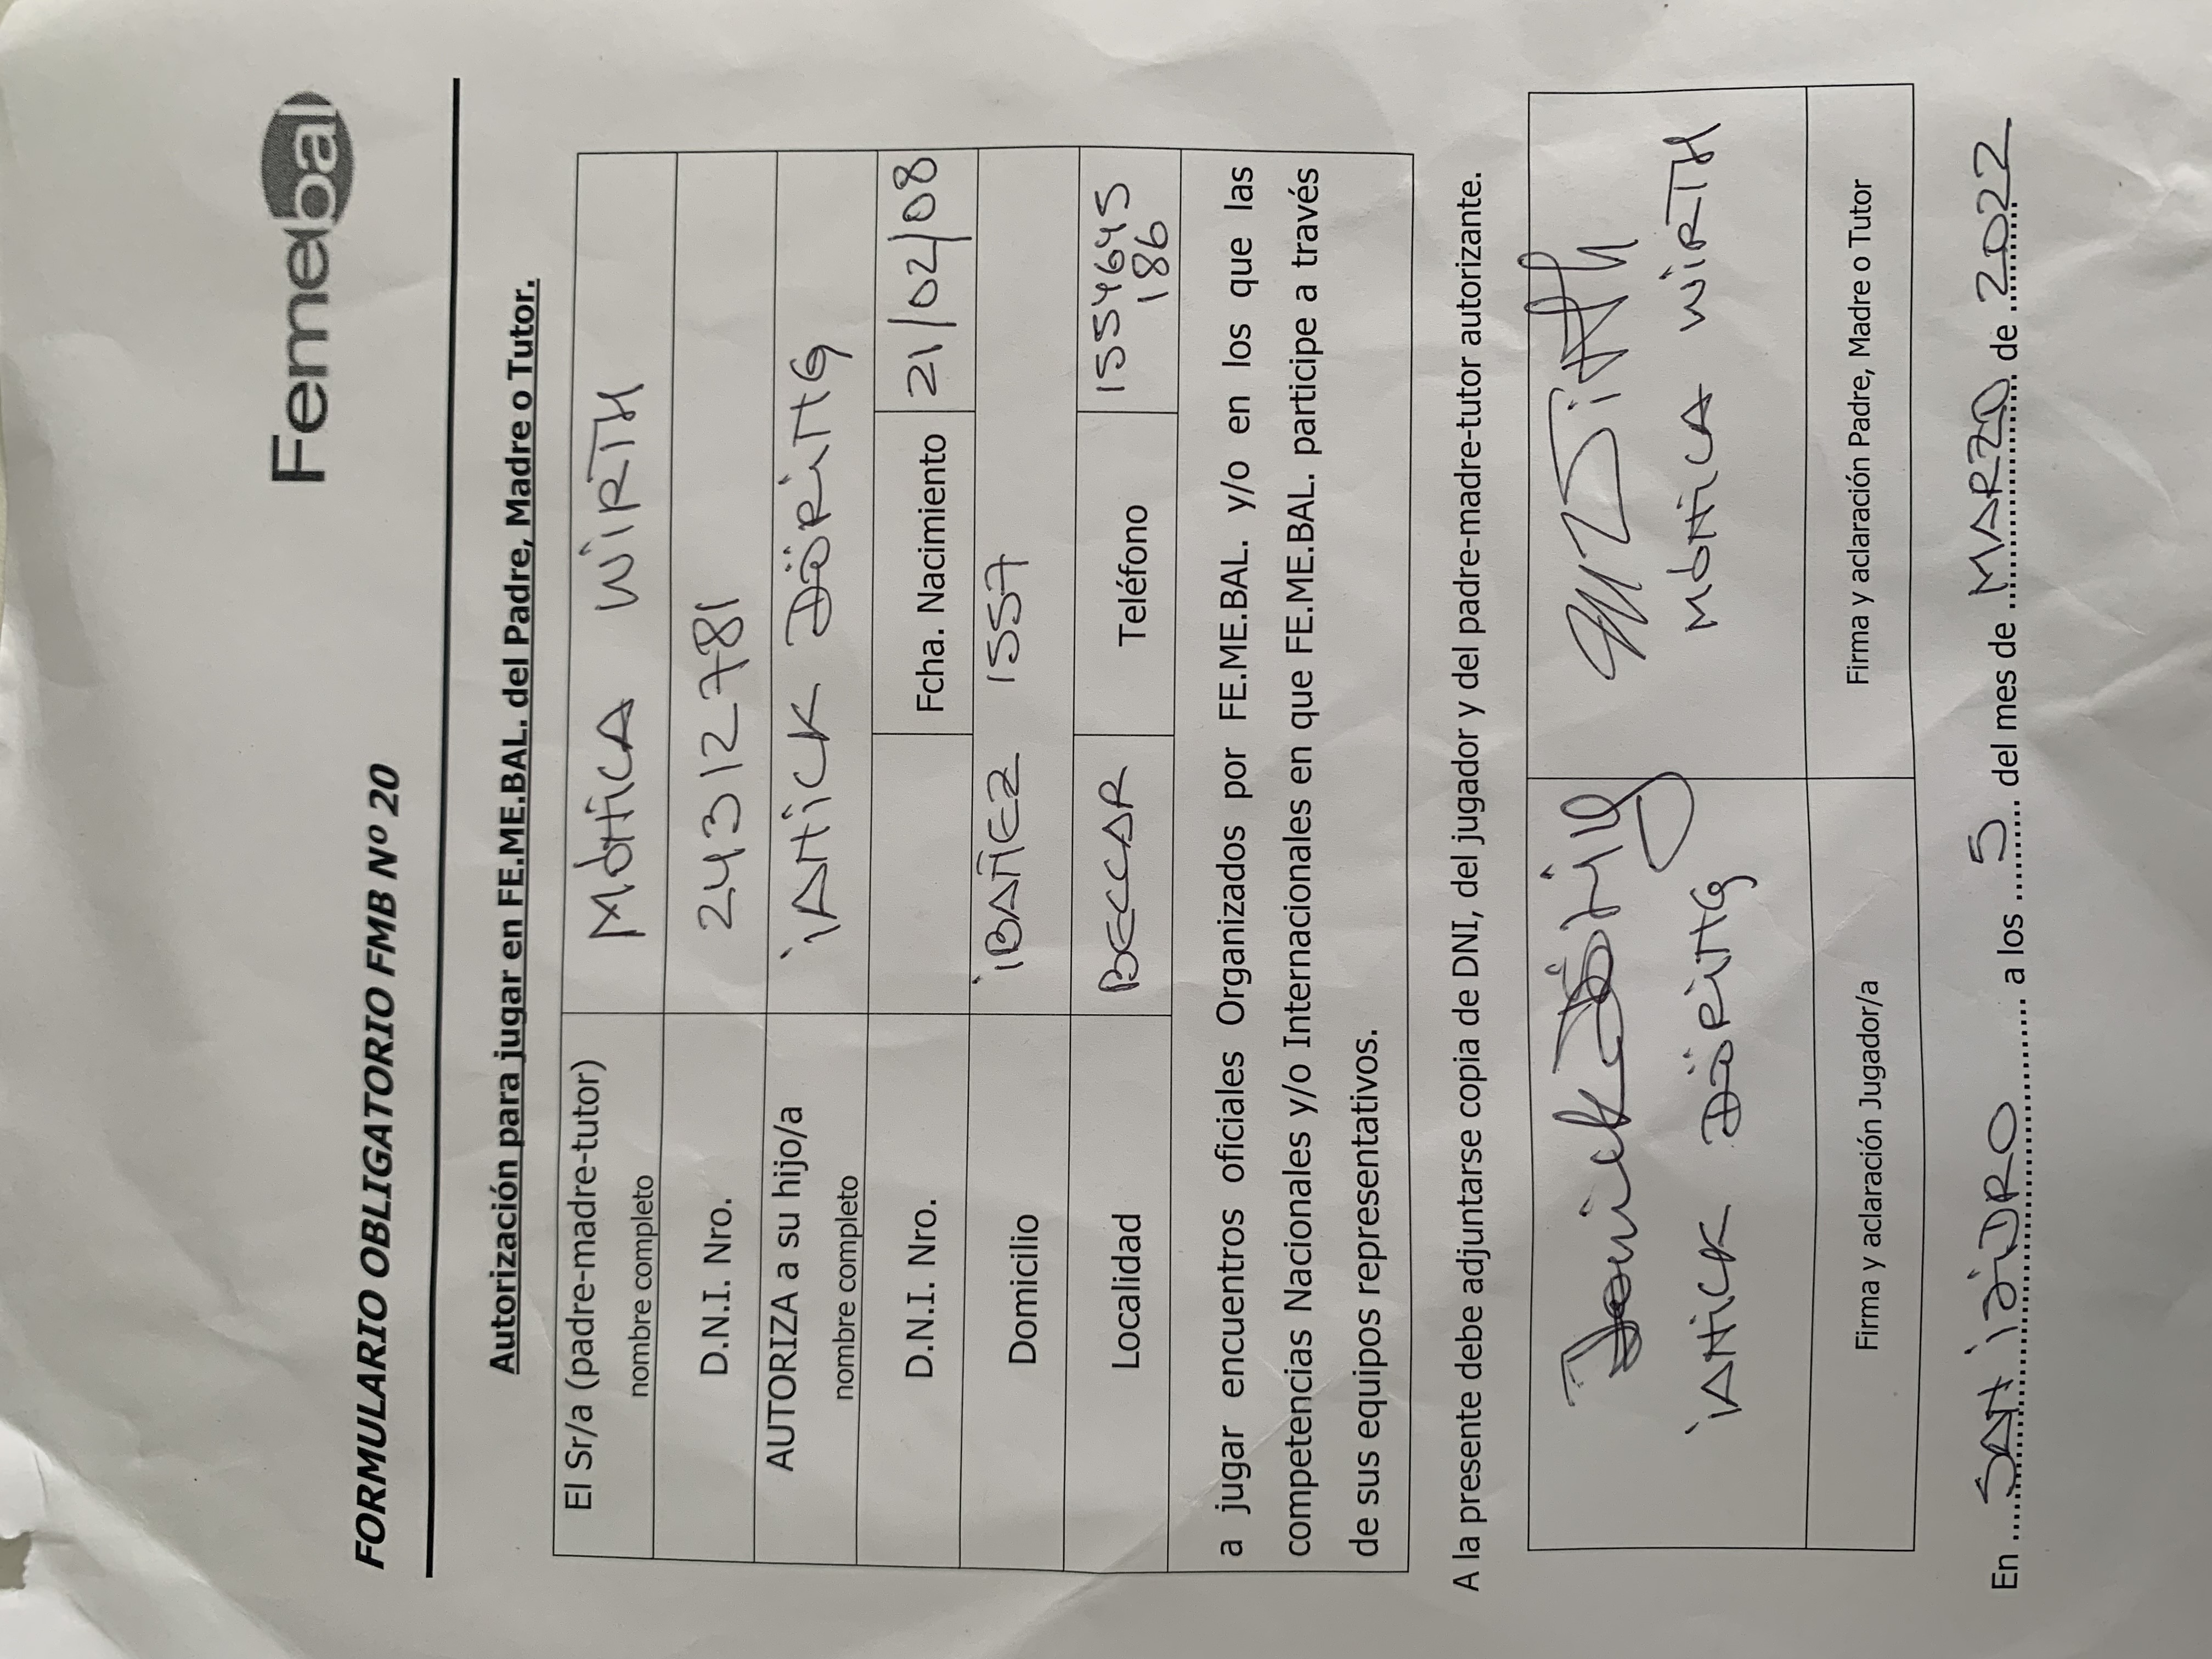 Femebal
FORMULARIO OBLIGATORIO FMB Nº 20
Autorización para jugar en FE.ME.BAL. del Padre, Madre o Tutor.
El Sr/a (padre-madre-tutor) MONICA WIRTH
nombre completo
D.N.I. Nro. 24312781
AUTORIZA a su hijo/a IANICK DÖRING
nombre completo
D.N.I. Nro. Fcha. Nacimiento 21/02/08
Domicilio IBAÑEZ 1557
Localidad BECCAR Teléfono 1554645
186
a jugar encuentros oficiales Organizados por FE.ME.BAL. y/o en los que las
competencias Nacionales y/o Internacionales en que FE.ME.BAL. participe a través
de sus equipos representativos.
A la presente debe adjuntarse copia de DNI, del jugador y del padre-madre-tutor autorizante.
IANICK DÖRING MONICA WIRTH
Firma y aclaración Jugador/a Firma y aclaración Padre, Madre o Tutor
En SAN ISIDRO a los 5 del mes de MARZO de 2022